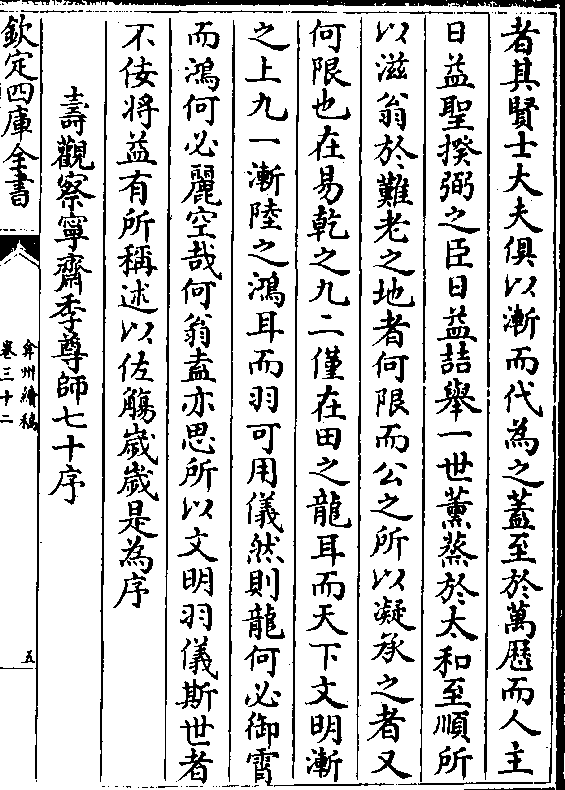 者其賢士大夫俱以漸而代為之蓋至於萬厯而人主
日益聖揆弼之臣日益喆舉一世薰蒸於太和至順所
以滋翁於難老之地者何限而公之所以凝承之者又
何限也在易乾之九二僅在田之龍耳而天下文明漸
之上九一漸陸之鴻耳而羽可用儀然則龍何必御霄
而鴻何必麗空哉何翁盍亦思所以文明羽儀斯世者
不佞将益有所稱述以佐觴歲歲是為序
壽觀察寧齋季尊師七十序
欽定四庫全書
弇州續稿
卷三十二
五